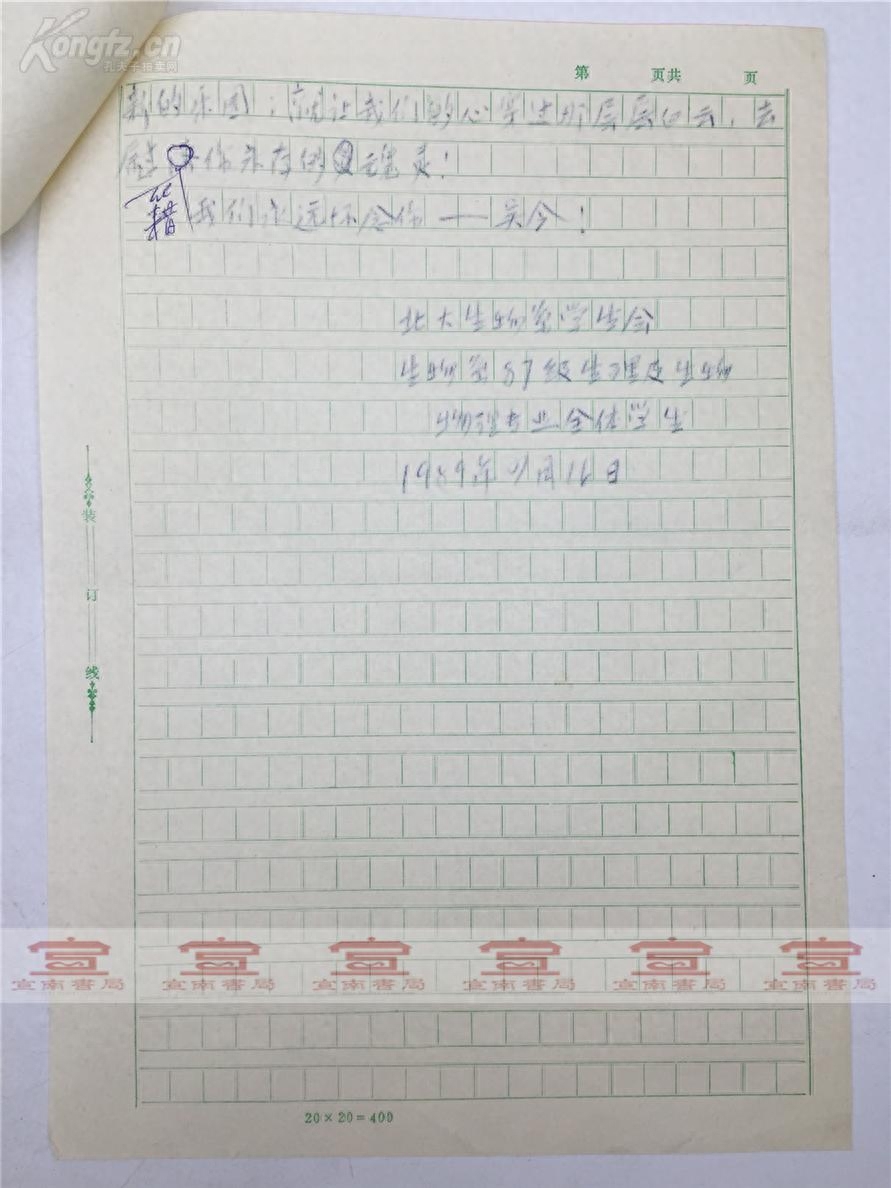 Kongfz.cn
孔夫子拍卖网
第 页共 页
新的乐园；就让我们的心穿过那层层白云，去
慰藉你永存的灵魂灵！
我们永远怀念你——吴今！
北大生物系学生会
生物系87级生理及生物
物理专业全体学生
1989年11月16日
装
订
线
宣南書局 宣南書局 宣南書局 宣南書局 宣南書局 宣南書局
20×20=400